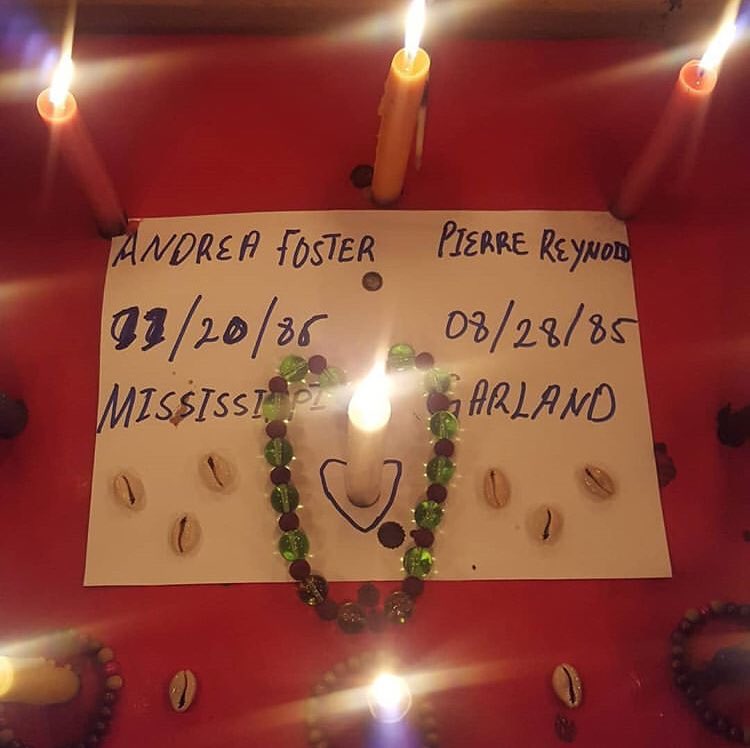 ANDREA FOSTER PIERRE REYNOLD
11/20/86 08/28/85
MISSISSIPPI GARLAND